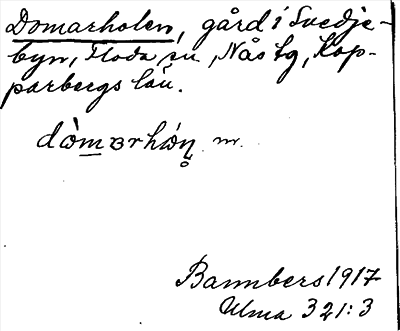 Domarholen, gård i Svedje-
byn, Floda sn, Nås tg, Kop-
parbergs län.
dὼmarhώn̥ m.
Bannbers 1917
Ulma 321:3